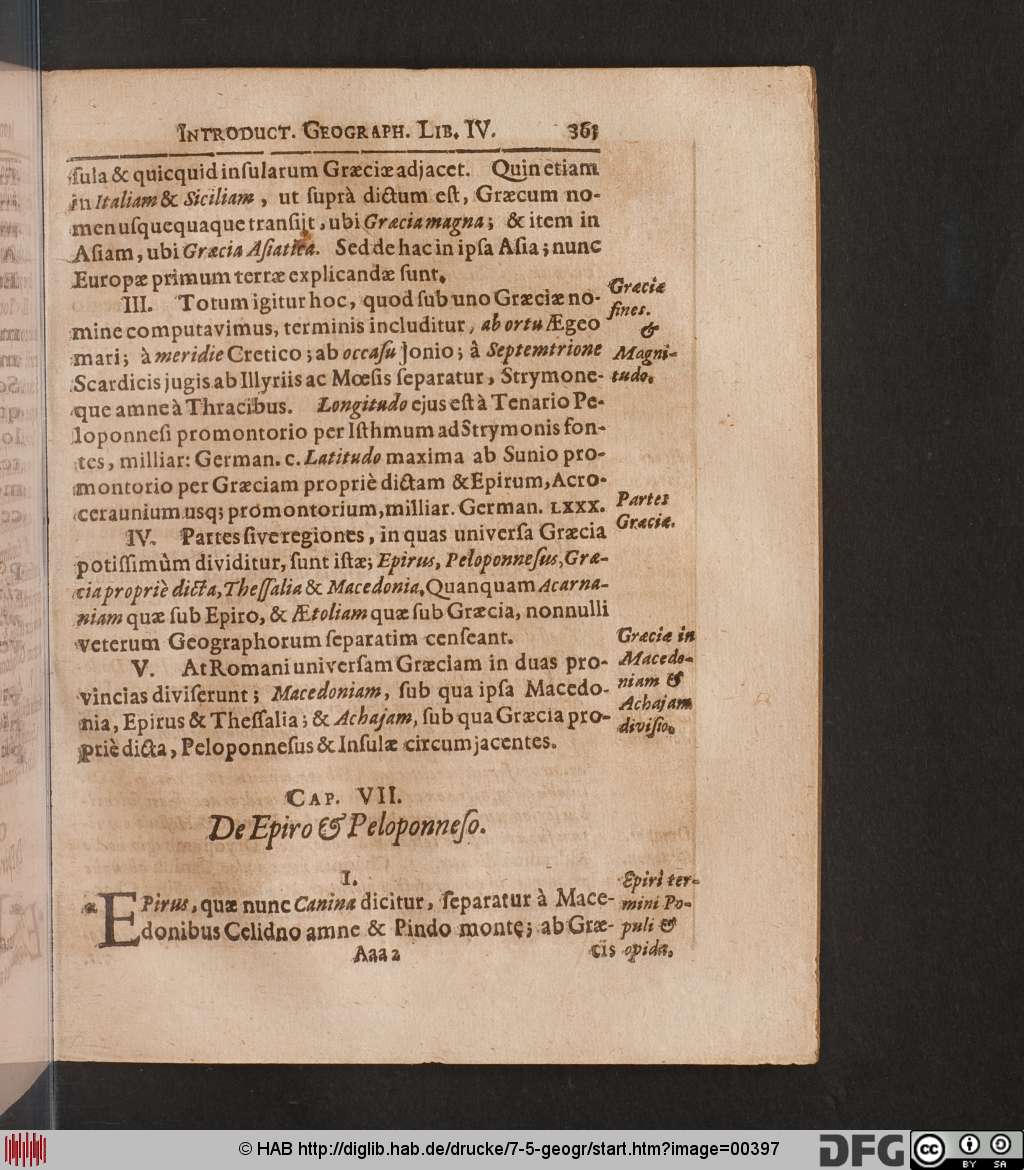 INTRODUCT. GEOGRAPH. LIB. IV. 363
ſula & quicquid inſularum Græciæ adjacet. Quin etiam
in Italiam & Siciliam, ut ſuprà dictum eſt, Græcum no-
men uſquequaque tranſijt, ubi Græcia magna; & item in
Aſiam, ubi Græcia Aſiatica. Sed de hac in ipſa Aſia; nunc
Europæ primum terræ explicandæ ſunt.
III. Totum igitur hoc, quod ſub uno Græciæ no-
mine computavimus, terminis includitur, ab ortu Ægeo
mari; à meridie Cretico; ab occaſu Jonio; â Septemtrione
Scardicis jugis ab Illyriis ac Mœſis ſeparatur, Strymone-
que amne à Thracibus. Longitudo ejus eſt à Tenario Pe-
loponneſi promontorio per Iſthmum ad Strymonis fon-
tes, milliar: German. c. Latitudo maxima ab Sunio pro-
montorio per Græciam propriè dictam & Epirum, Acro-
ceraunium usq; promontorium, milliar. German. LXXX.
IV. Partes ſive regiones, in quas univerſa Græcia
potiſſimùm dividitur, ſunt iſtæ; Epirus, Peloponneſus, Græ-
cia propriè dicta, Theſſalia & Macedonia, Quanquam Acarna-
niam quæ ſub Epiro, & Ætoliam quæ ſub Græcia, nonnulli
veterum Geographorum ſeparatim cenſeant.
V. At Romani univerſam Græciam in duas pro-
vincias diviſerunt; Macedoniam, ſub qua ipſa Macedo-
nia, Epirus & Theſſalia; & Achajam, ſub qua Græcia pro-
priè dicta, Peloponneſus & Inſulæ circumjacentes.
Græciæ
fines.
&
Magni-
tudo.
Partes
Græciæ.
Græciæ in
Macedo-
niam &
Achajam
diviſio.
CAP. VII.
De Epiro & Peloponneſo.
I.
EPirus, quæ nunc Canina dicitur, ſeparatur à Mace-
donibus Celidno amne & Pindo monte; ab Græ-
Aaa 2 cis
Epiri ter-
mini Po-
puli &
opida.
© HAB http://diglib.hab.de/drucke/7-5-geogr/start.htm?image=00397
DFG
cc BY SA